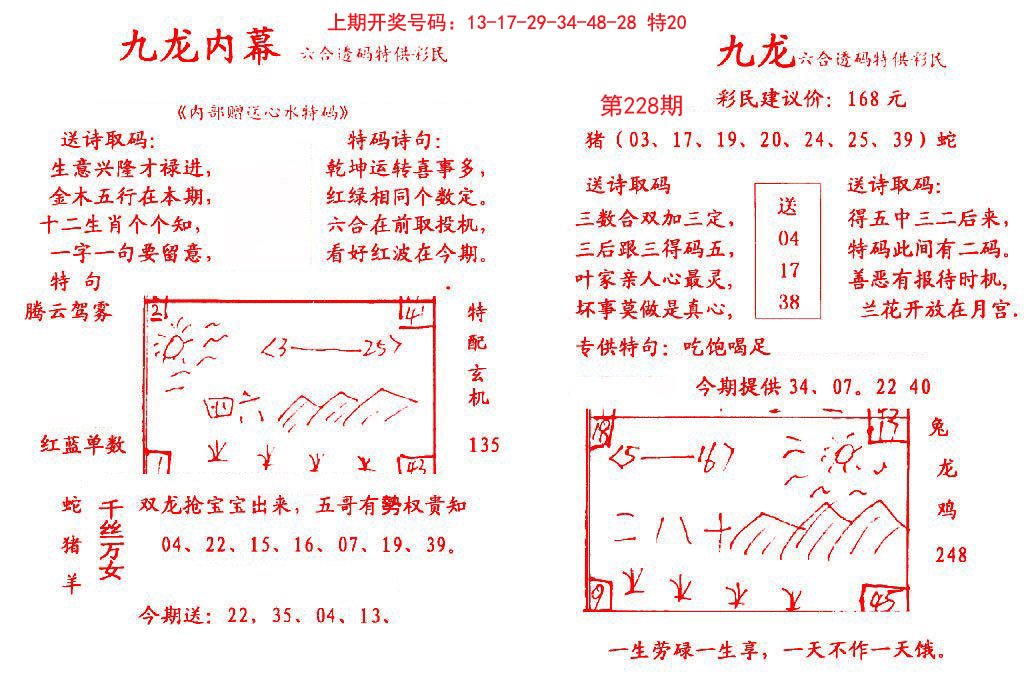 上期开奖号码：13-17-29-34-48-28 特20
九龙内幕 六合透码特供彩民
《内部赠送心水特码》
送诗取码：
生意兴隆才禄进，
金木五行在本期，
十二生肖个个知，
一字一句要留意，
特码诗句：
乾坤运转喜事多，
红绿相同个数定。
六合在前取投机，
看好红波在今期。
特 句
腾云驾雾
红蓝单数
2
41
<3——25>
四六
1
43
特配玄机
135
蛇猪羊
千丝万女
双龙抢宝宝出来，五哥有勢权貴知
04、22、15、16、07、19、39。
今期送：22，35、04、13、
九龙 六合透码特供彩民
第228期
彩民建议价：168 元
猪（03、17、19、20、24、25、39）蛇
送诗取码
三数合双加三定，
三后跟三得码五，
叶家亲人心最灵，
坏事莫做是真心，
送
04
17
38
送诗取码：
得五中三二后来，
特码此间有二码。
善恶有报待时机，
兰花开放在月宫.
专供特句：吃饱喝足
今期提供 34、07。22 40
18
17
<5——16>
二八十
9
45
兔
龙
鸡
248
一生劳碌一生享，一天不作一天饿。